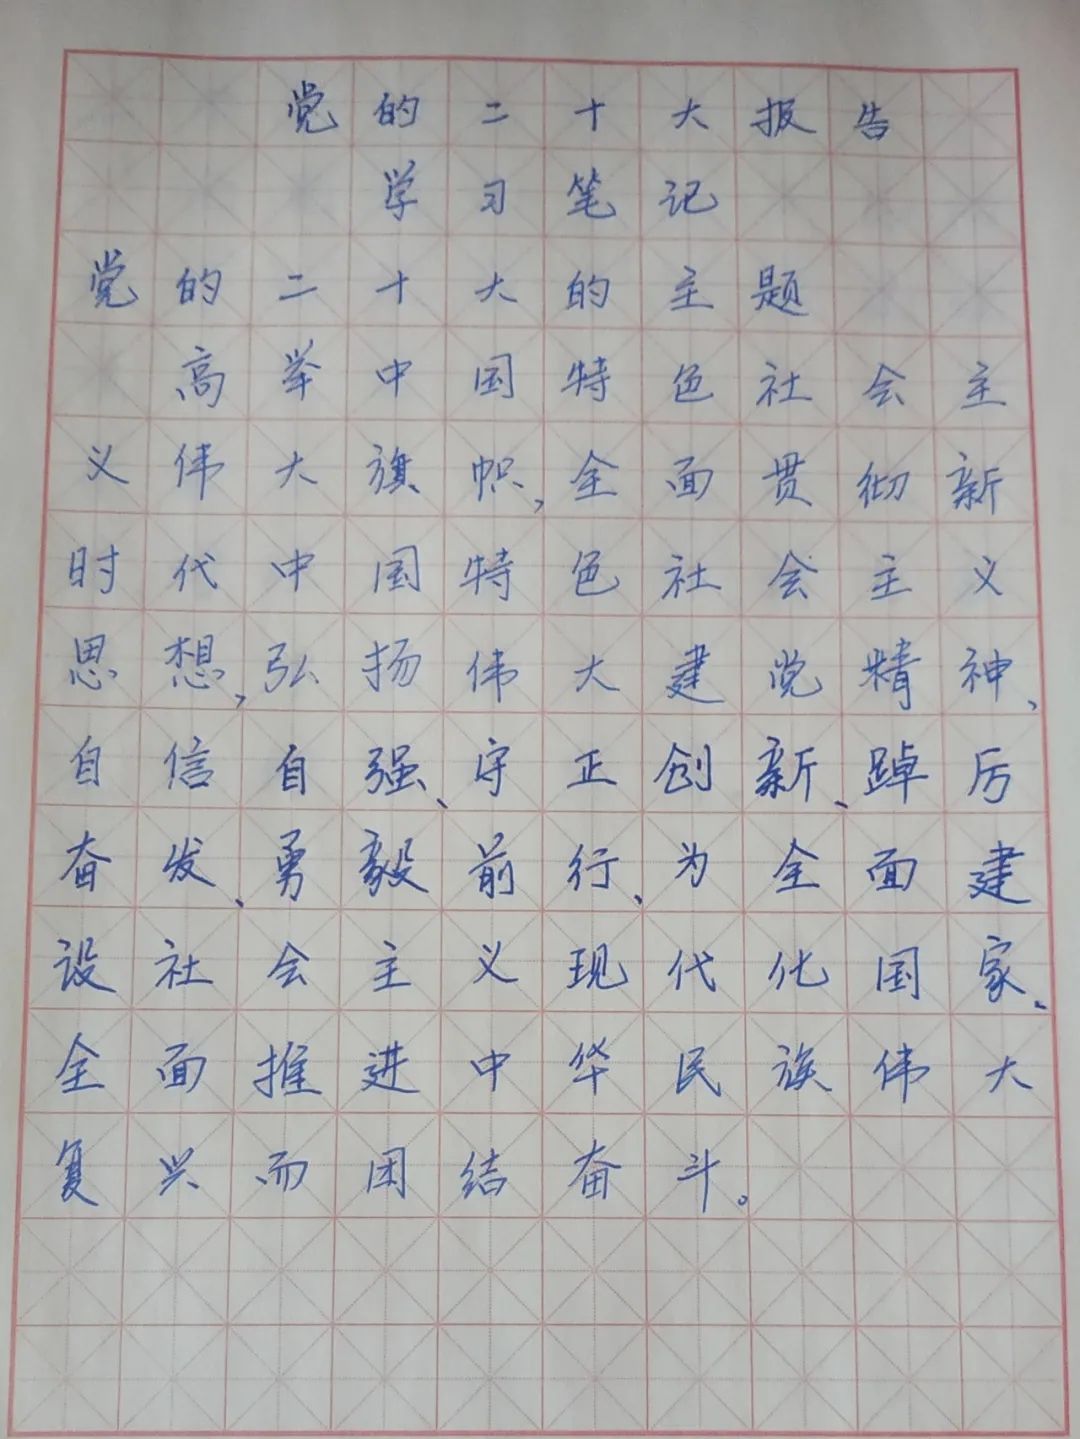 党的二十大报告
学习笔记
党的二十大的主题
高举中国特色社会主
义伟大旗帜,全面贯彻新
时代中国特色社会主义
思想,弘扬伟大建党精神、
自信自强、守正创新、踔厉
奋发、勇毅前行、为全面建
设社会主义现代化国家、
全面推进中华民族伟大
复兴而团结奋斗。